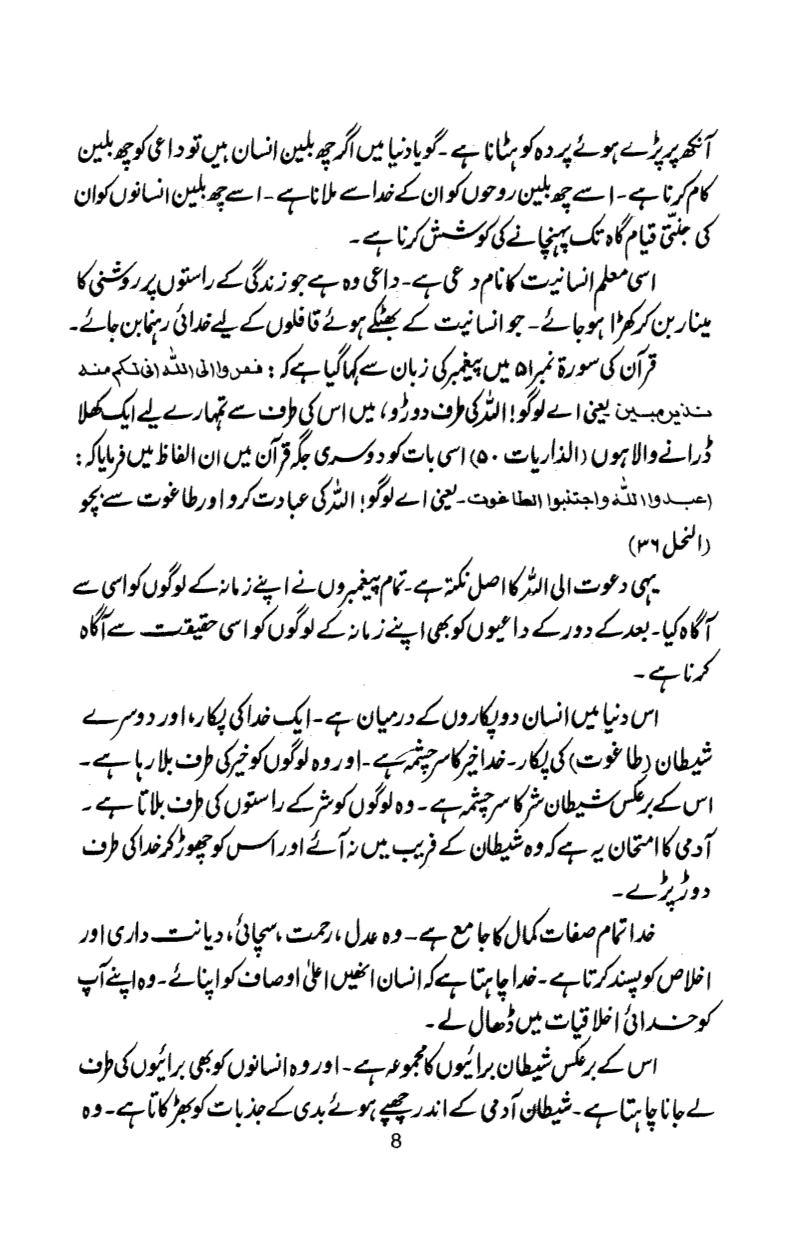 آنکھ پر پڑے ہوئے پردہ کو ہٹانا ہے ۔ گویا دنیا میں اگر چھ بلین انسان ہیں تو داعی کو چھ بلین
کام کرنا ہے ۔ اسے چھ بلین روحوں کو ان کے خدا سے ملانا ہے ۔ اسے چھ بلین انسانوں کو ان
کی جنتی قیام گاہ تک پہنچانے کی کوشش کرنا ہے ۔
اسی معلم انسانیت کا نام دعی ہے ۔ داعی وہ ہے جو زندگی کے راستوں پر روشنی کا
مینار بن کر کھڑا ہو جائے ۔ جو انسانیت کے بھٹکے ہوئے قافلوں کے لیے خدائی رہنما بن جائے ۔
قرآن کی سورۃ نمبر ۵۱ میں پیغمبر کی زبان سے کہا گیا ہے کہ : ففروا الی اللّٰہ انی لکم منہ
نذیر مبین یعنی اے لوگو! اللہ کی طرف دوڑو، میں اس کی طرف سے تمہارے لیے ایک کھلا
ڈرانے والا ہوں (الذاریات ۵۰) اسی بات کو دوسری جگہ قرآن میں ان الفاظ میں فرمایا کہ :
اعبدوا اللّٰہ واجتنبوا الطاغوت ۔ یعنی اے لوگو! اللہ کی عبادت کرو اور طاغوت سے بچو
(النحل ۳۶)
یہی دعوت الی اللہ کا اصل نکتہ ہے ۔ تمام پیغمبروں نے اپنے زمانہ کے لوگوں کو اسی سے
آگاہ کیا ۔ بعد کے دور کے داعیوں کو بھی اپنے زمانہ کے لوگوں کو اسی حقیقت سے آگاہ
کرنا ہے ۔
اس دنیا میں انسان دو پکاروں کے درمیان ہے ۔ ایک خدا کی پکار، اور دوسرے
شیطان (طاغوت) کی پکار ۔ خدا خیر کا سرچشمہ ہے ۔ اور وہ لوگوں کو خیر کی طرف بلا رہا ہے ۔
اس کے برعکس شیطان شر کا سرچشمہ ہے ۔ وہ لوگوں کو شر کے راستوں کی طرف بلاتا ہے ۔
آدمی کا امتحان یہ ہے کہ وہ شیطان کے فریب میں نہ آئے اور اس کو چھوڑ کر خدا کی طرف
دوڑ پڑے ۔
خدا تمام صفات کمال کا جامع ہے ۔ وہ عدل، رحمت، سچائی، دیانت داری اور
اخلاص کو پسند کرتا ہے ۔ خدا چاہتا ہے کہ انسان انھیں اعلیٰ اوصاف کو اپنائے ۔ وہ اپنے آپ
کو خدائی اخلاقیات میں ڈھال لے ۔
اس کے برعکس شیطان برائیوں کا مجموعہ ہے ۔ اور وہ انسانوں کو بھی برائیوں کی طرف
لے جانا چاہتا ہے ۔ شیطان آدمی کے اندر چھپے ہوئے بدی کے جذبات کو بھڑکاتا ہے ۔ وہ
8